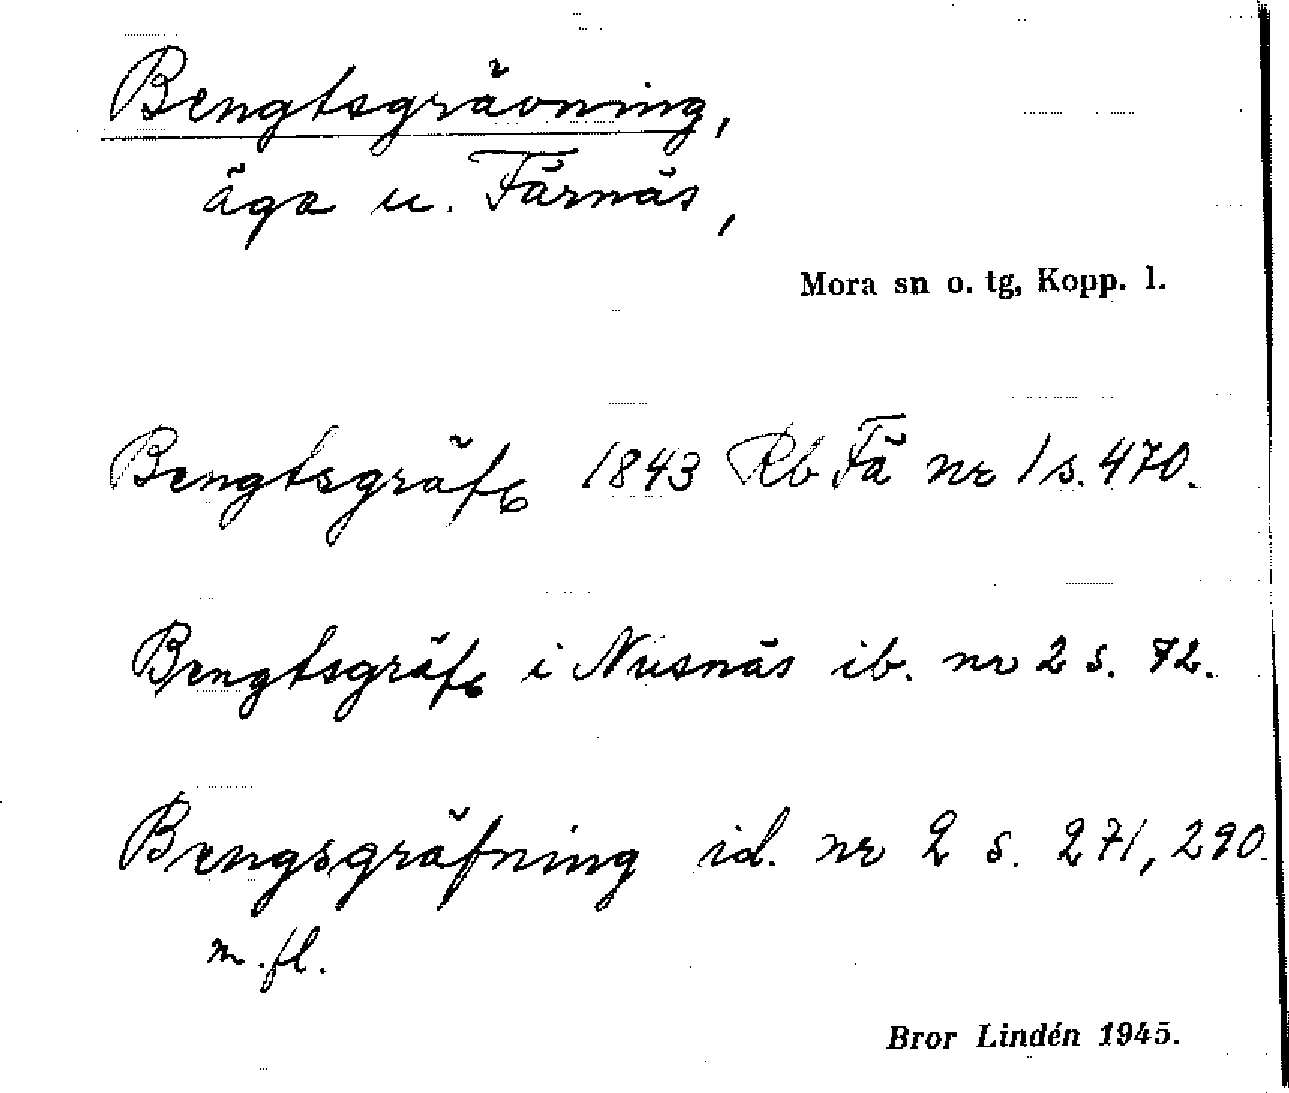 Bengtsgrävning,
äga u. Färnäs,
Mora sn o. tg, Kopp. l.
Bengtsgräfg 1843 Rb Fä nr 1 s. 470.
Bengtsgräfg i Nusnäs ib. nr 2 s. 72.
Bengsgräfning id. nr 2 s. 271, 290.
m.fl.
Bror Lindén 1945.